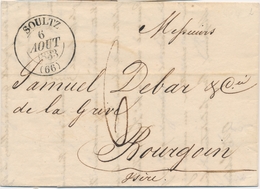 SOULTZ
6
AOUT
(66)
Messieurs
Samuel Debar & Cie
de la Grive
Bourgoin
Isère.